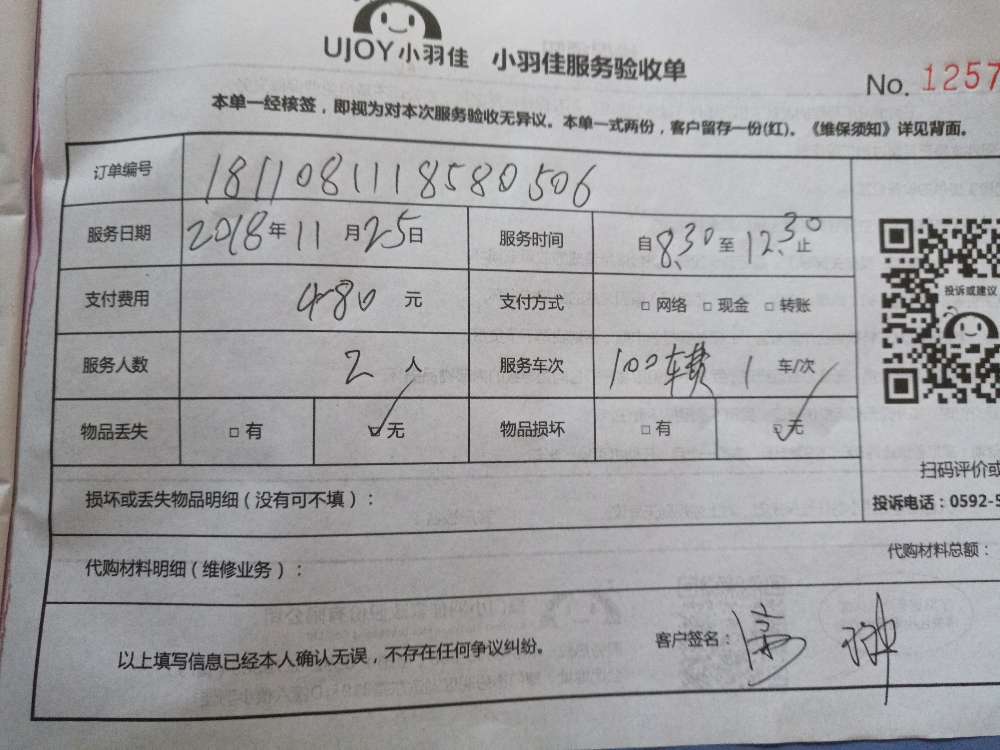 UJOY小羽佳 小羽佳服务验收单
No. 1257
本单一经核签，即视为对本次服务验收无异议。本单一式两份，客户留存一份(红)。《维保须知》详见背面。
订单编号 1811081118580506
服务日期 2018年11月25日 服务时间 自8:30至12:30止
支付费用 480 元 支付方式 □ 网络 □ 现金 □ 转账
投诉或建议
服务人数 2 人 服务车次 100车费 1 车/次
物品丢失 □ 有 ☑ 无 物品损坏 □ 有 ☑ 无
扫码评价或
损坏或丢失物品明细（没有可不填）：
投诉电话：0592-5
代购材料总额：
代购材料明细（维修业务）：
以上填写信息已经本人确认无误，不存在任何争议纠纷。
客户签名：